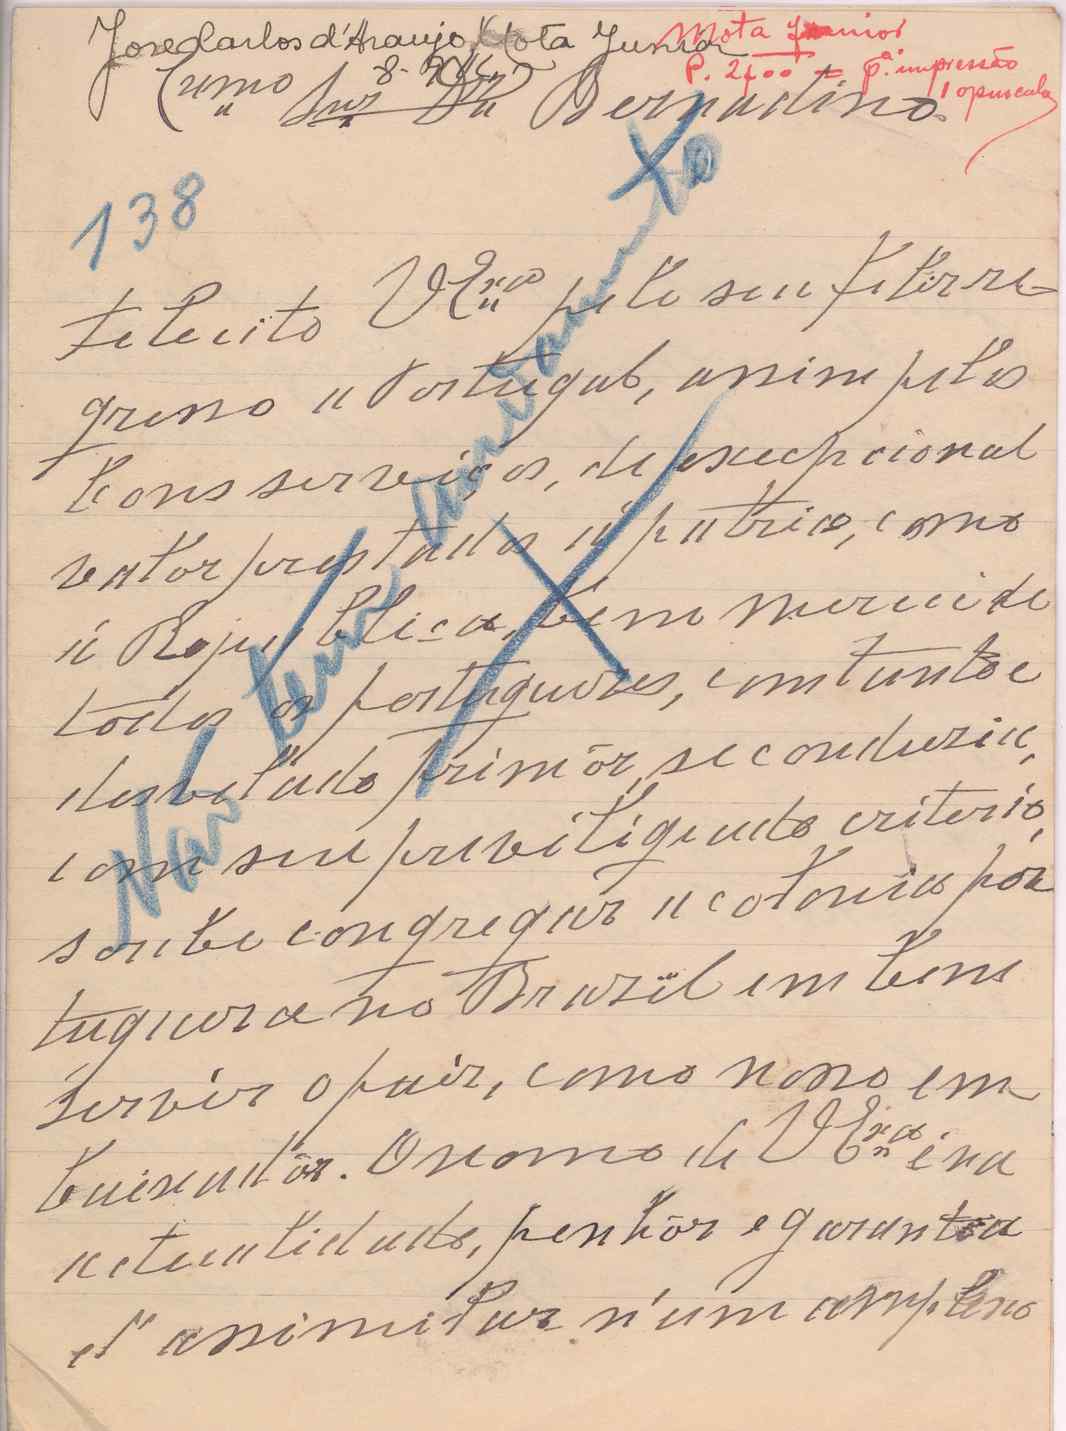 José Carlos d'Araujo Mota Junior
Mota Junior
P. 2400 = pª. impressão
1 opuscula
Exmo Snr Dr Bernadino.
138
Não tem andamento
felecito VExcia pelo seu feliz re-
gresso a Portugal, assim pelos
bons serviços, de excepcional
valor prestados á patria, como
á Republica, bem merecido
todos os portugueses, com tanto e
desvelado primôr, se conduzia,
com seu previligeado criterio,
soube congregar a colonia por
tuguesa no Brazil em bem
servir o paiz, como nosso em
baixadôr. O nome de VExcia é na
actualidade, penhôr e garantia
d'assimilar n'um amplexo